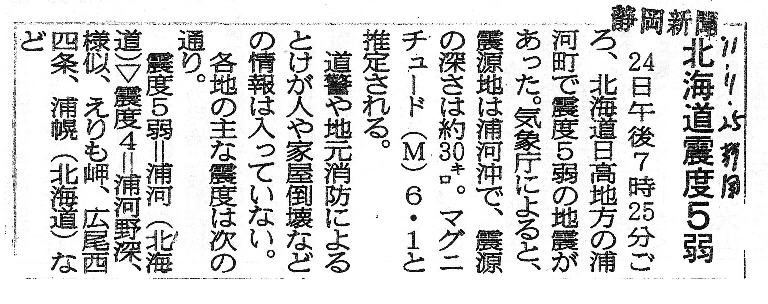 静岡新聞
11.11.25
北海道震度5弱
24日午後7時25分ご
ろ、北海道日高地方の浦
河町で震度5弱の地震が
あった。気象庁によると、
震源地は浦河沖で、震源
の深さは約30㌔。マグニ
チュード(M)6・1と
推定される。
道警や地元消防による
とけが人や家屋倒壊など
の情報は入っていない。
各地の主な震度は次の
通り。
震度5弱=浦河(北海
道)▽震度4=浦河野深、
様似、えりも岬、広尾西
四条、浦幌(北海道)な
ど